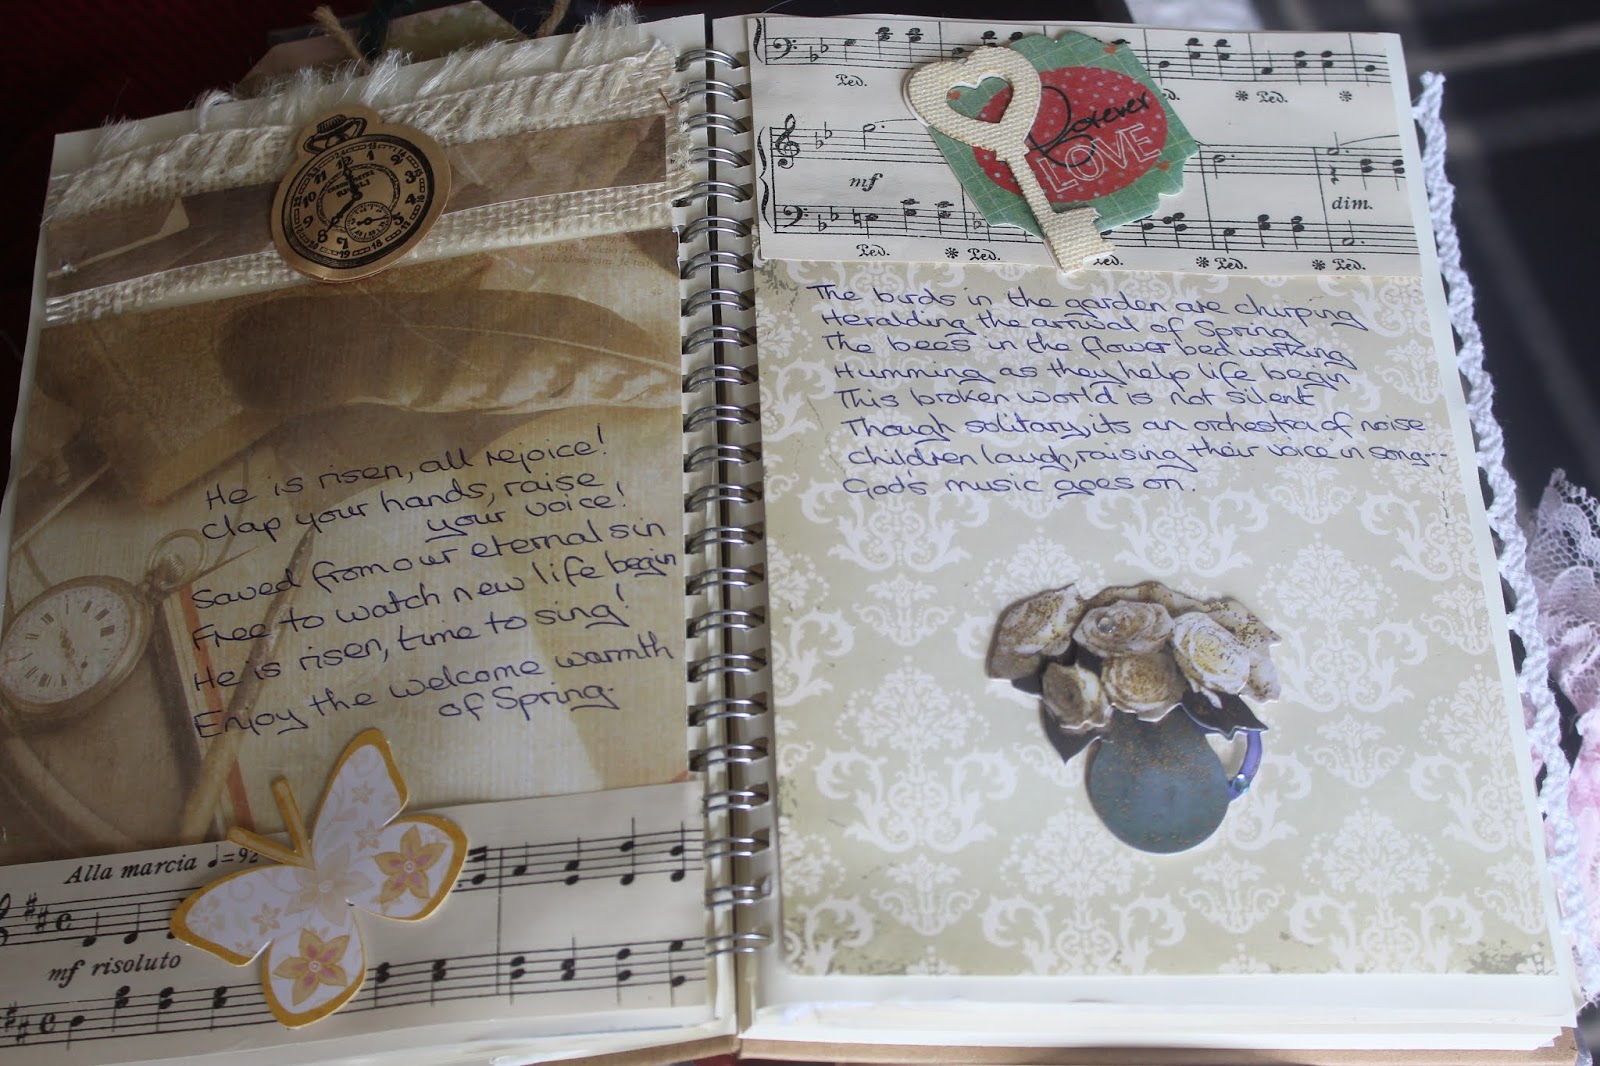 He is risen, all rejoice!
Clap your hands, raise
your voice!
Saved from our eternal sin
Free to watch new life begin
He is risen, time to sing!
Enjoy the welcome warmth
of Spring.
Alla marcia ♩=92
mf risoluto
Ped.
Ped.
* Ped.
*
Forever
LOVE
mf
dim.
Ped.
* Ped.
Ped.
* Ped.
* Ped.
The birds in the garden are chirping
Heralding the arrival of Spring
The bees in the flower bed working
Humming as they help life begin
This broken world is not silent
Though solitary, its an orchestra of noise
Children laugh, raising their voice in song...
God's music goes on.